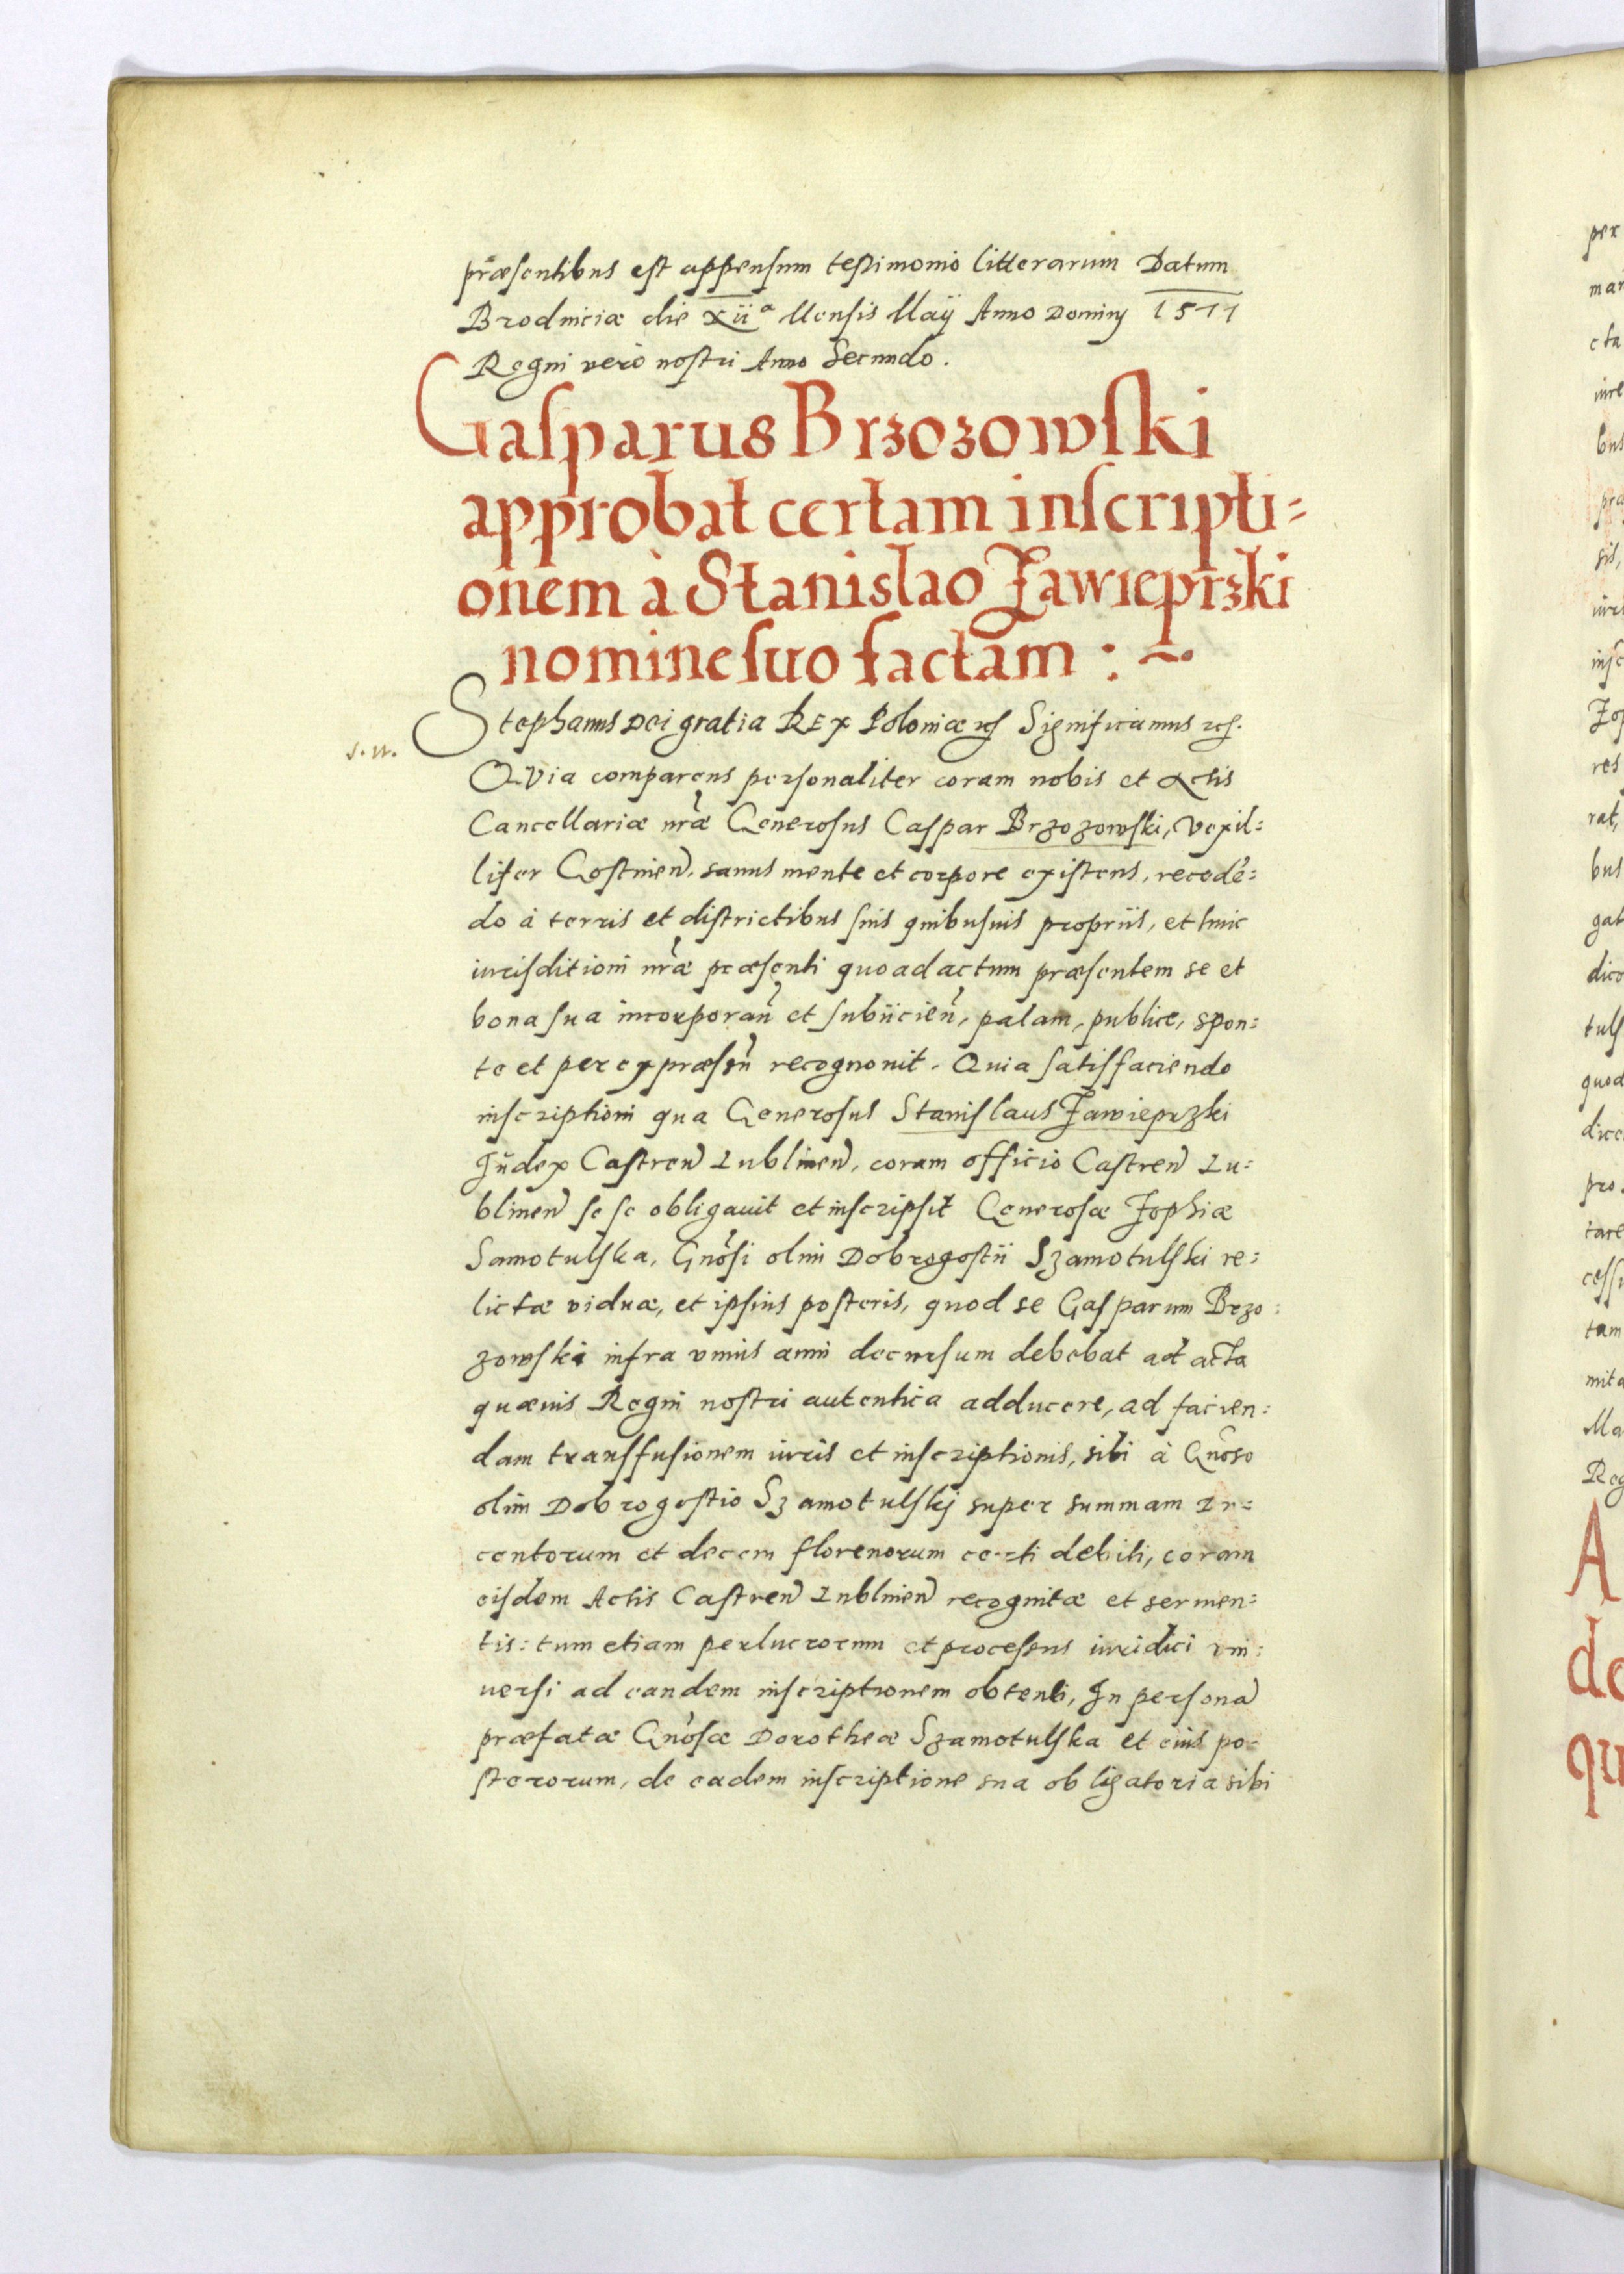 præsentibus est appensum testimonio litterarum Datum
Brodniciæ die xiiᵃ Mensis Maÿ Anno Dominÿ 1577
Regni verò nostri Anno Secundo.
Gasparus Brzozowski
approbat certam inscripti=
onem à Stanislao Zawieprzki
nomine suo factam : ~
Stephanus Dei gratia REX Poloniæ etc Significamus etc.
Quia comparens personaliter coram nobis et Actis
Cancellariæ nr̃æ Generosus Caspar Brzozowski, Vexil=
lifer Gostinen̄. sanus mente et corpore existens, recedē=
do à terris et districtibus suis quibusuis propriis, et huic
iurisditioni nr̃æ præsenti quo ad actum præsentem se et
bona sua incorporan̄ et subiicien̄, palam, publice, spon=
te et per expræssū recognouit. Quia satisfaciendo
inscriptioni qua Generosus Stanislaus Zawieprzki
Judex Castren̄ Lublinen̄, coram officio Castren̄ Lu=
blinen̄ sese obligauit et inscripsit Generosæ Zophiæ
Samotulska, Gnōsi olim Dobrogostii Szamotulski re=
lictæ viduæ, et ipsius posteris, quod se Gasparum Brzo=
zowski infra vnius anni decursum debebat ad acta
quæuis Regni nostri autentica adducere, ad facien=
dam transfusionem iuris et inscriptionis, sibi à Gnōso
olim Dobrogostio Szamotulskj super summam Tr=
centorum et decem florenorum certi debiti, coram
eisdem Actis Castren̄ Lublinen̄ recognitæ et sermen=
tis: tum etiam perlucrorum et processus iuridici vni=
uersi ad eandem inscriptionem obtenti, In persona
præfatæ Gnōsæ Dorotheæ Szamotulska et eius po=
sterorum, de eadem inscriptione sua obligatoria sibi